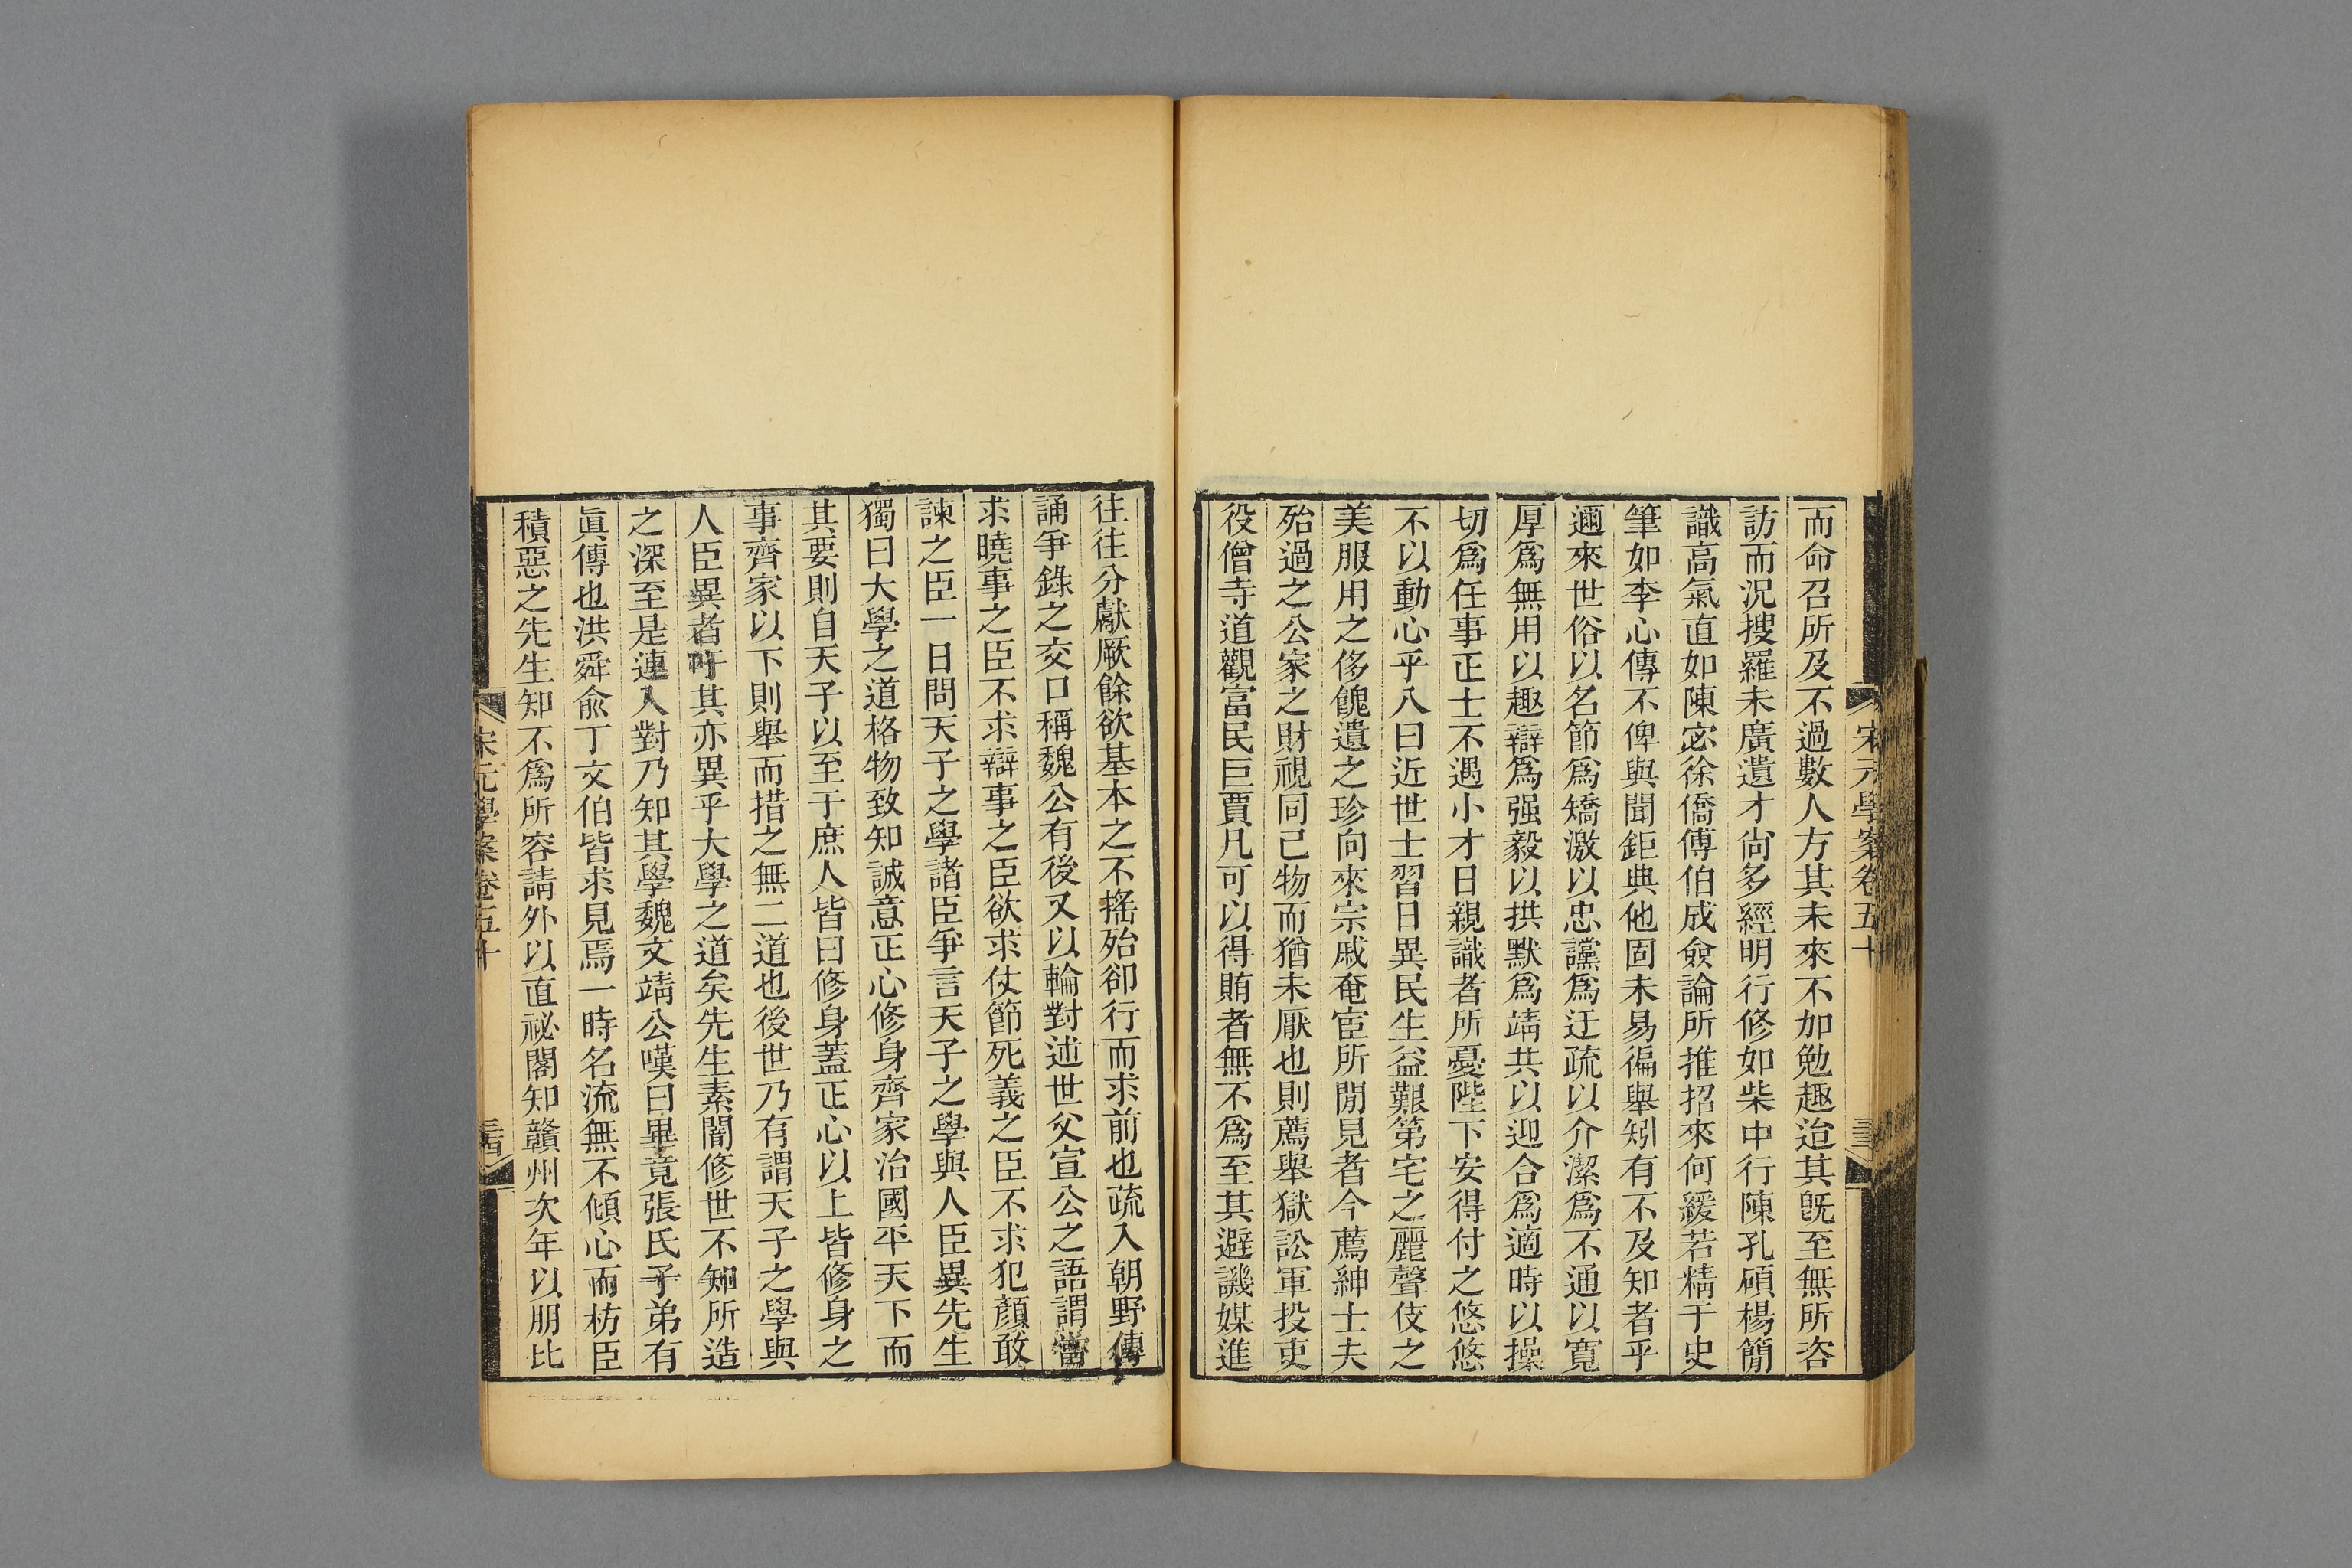 而命召所及不過數人方其未來不加勉趣迨其旣至無所咨
訪而況搜羅未廣遺才尙多經明行修如柴中行陳孔碩楊簡
識高氣直如陳宓徐僑傅伯成僉論所推招來何緩若精于史
筆如李心傳不俾與聞鉅典他固未易徧舉矧有不及知者乎
邇來世俗以名節爲矯激以忠讜爲迂疏以介潔爲不通以寬
厚爲無用以趣辯爲强毅以拱默爲靖共以迎合爲適時以操
切爲任事正士不遇小才日親識者所憂陛下安得付之悠悠
不以動心乎八曰近世士習日異民生益艱第宅之麗聲伎之
美服用之侈餽遺之珍向來宗戚奄宦所閒見者今薦紳士夫
殆過之公家之財視同己物而猶未厭也則薦舉獄訟軍投吏
役僧寺道觀富民巨賈凡可以得賄者無不爲至其避譏媒進
宋元學案卷五十
往往分獻厥餘欲基本之不搖殆卻行而求前也疏入朝野傳
誦爭錄之交口稱魏公有後又以輪對述世父宣公之語謂當
求曉事之臣不求辯事之臣欲求仗節死義之臣不求犯顏敢
諫之臣一日問天子之學諸臣爭言天子之學與人臣異先生
獨曰大學之道格物致知誠意正心修身齊家治國平天下而
其要則自天子以至于庶人皆曰修身蓋正心以上皆修身之
事齊家以下則舉而措之無二道也後世乃有謂天子之學與
人臣異者吁其亦異乎大學之道矣先生素闇修世不知所造
之深至是連入對乃知其學魏文靖公嘆曰畢竟張氏子弟有
眞傳也洪舜兪丁文伯皆求見焉一時名流無不傾心而枋臣
積惡之先生知不爲所容請外以直祕閣知贛州次年以朋比
宋元學案卷五十